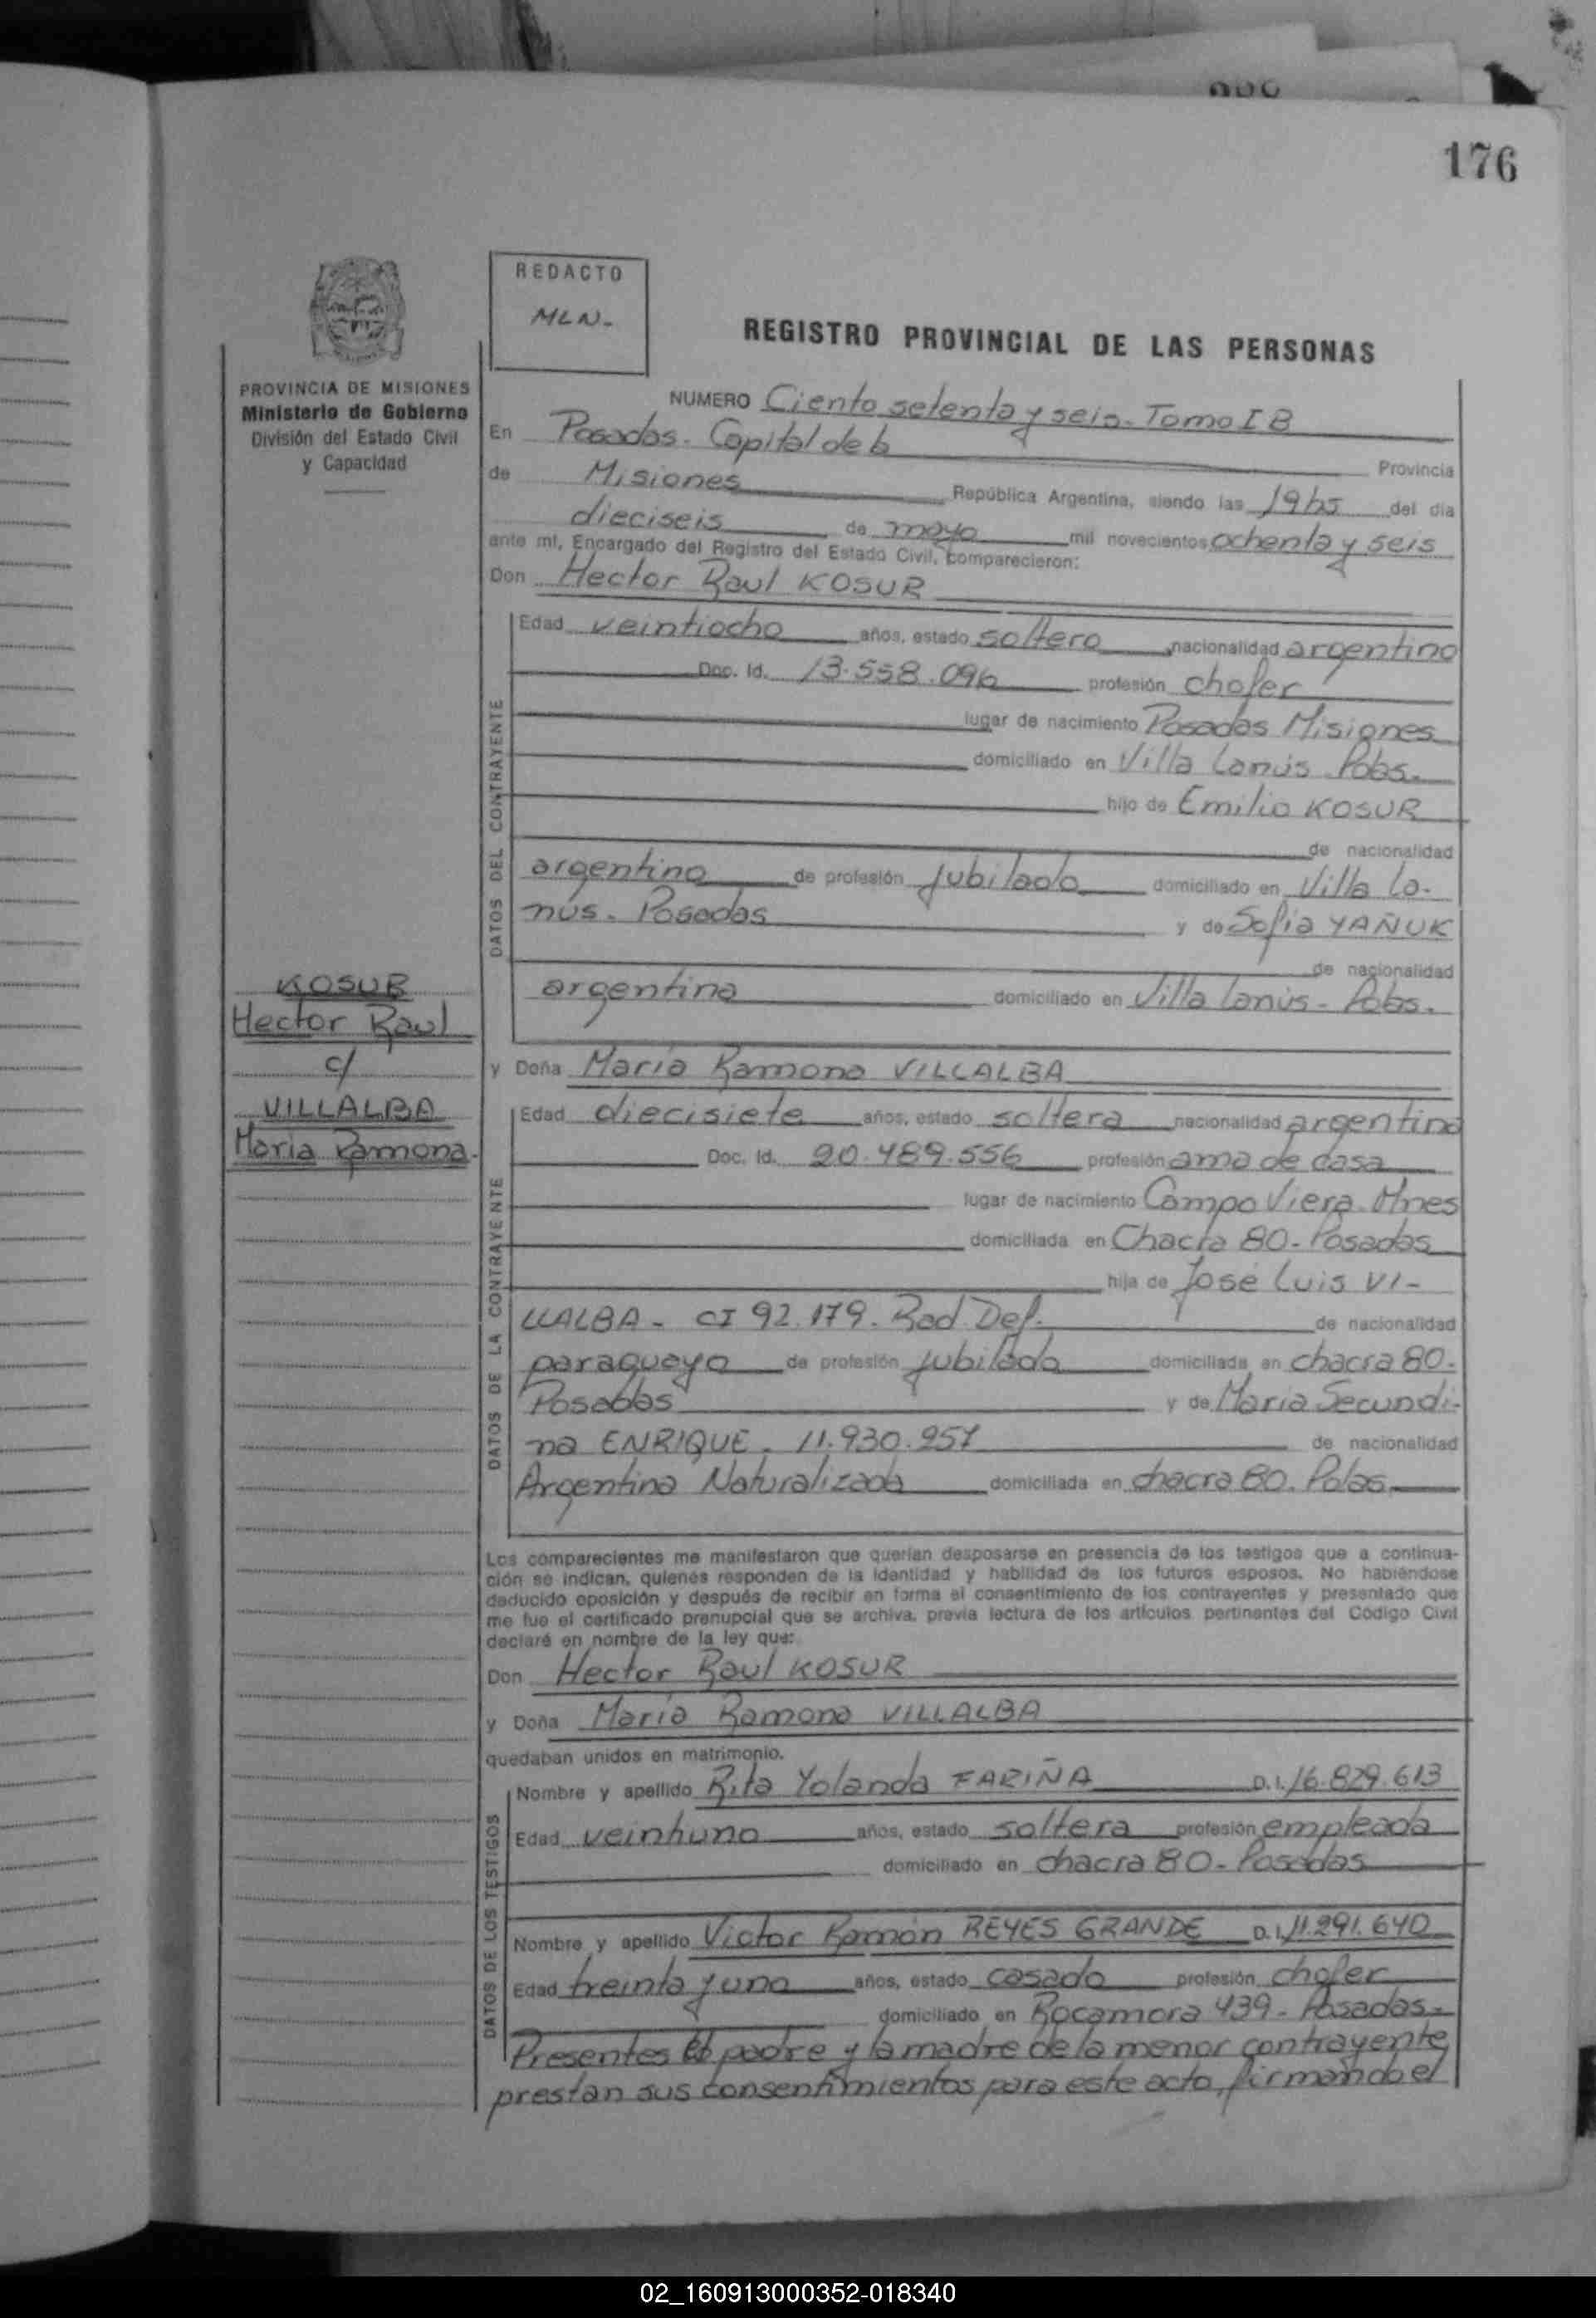 176
REDACTO
MLN-
REGISTRO PROVINCIAL DE LAS PERSONAS
PROVINCIA DE MISIONES
Ministerio de Gobierno
División del Estado Civil
y Capacidad
NUMERO Ciento setenta y seis - Tomo I B
En Posadas - Capital de la Provincia
de Misiones República Argentina, siendo las 19hs del día
dieciseis de mayo mil novecientos ochenta y seis
ante mí, Encargado del Registro del Estado Civil, comparecieron:
Don Hector Raul KOSUR
DATOS DEL CONTRAYENTE
Edad veintiocho años, estado soltero nacionalidad argentino
Doc. Id. 13.558.096 profesión chofer
lugar de nacimiento Posadas Misiones
domiciliado en Villa Lanús Pdas.
hijo de Emilio KOSUR
de nacionalidad
argentino de profesión jubilado domiciliado en Villa La-
nús - Posadas y de Sofia YAÑUK
de nacionalidad
argentina domiciliado en Villa Lanús - Pdas.
KOSUR
Hector Raul
c/
VILLALBA
Maria Ramona.
y Doña María Ramona VILLALBA
DATOS DE LA CONTRAYENTE
Edad diecisiete años, estado soltera nacionalidad argentina
Doc. Id. 20.489.556 profesión ama de casa
lugar de nacimiento Campo Viera. Mnes
domiciliada en Chacra 80 - Posadas
hija de José Luis VI-
LLALBA - CI 92.179. Rad. Def. de nacionalidad
paraguayo de profesión jubilado domiciliada en chacra 80.
Posadas y de Maria Secundi-
na ENRIQUE. 11.930.957 de nacionalidad
Argentina Naturalizada domiciliada en chacra 80. Pdas.
Los comparecientes me manifestaron que querían desposarse en presencia de los testigos que a continua-
ción se indican, quienes responden de la identidad y habilidad de los futuros esposos. No habiéndose
deducido oposición y después de recibir en forma el consentimiento de los contrayentes y presentado que
me fue el certificado prenupcial que se archiva, previa lectura de los artículos pertinentes del Código Civil
declaré en nombre de la ley que:
Don Hector Raul KOSUR
y Doña María Ramona VILLALBA
quedaban unidos en matrimonio.
DATOS DE LOS TESTIGOS
Nombre y apellido Rita Yolanda FARIÑA D.I. 16.829.613
Edad veintiuno años, estado soltera profesión empleada
domiciliado en chacra 80 - Posadas
Nombre y apellido Victor Ramón REYES GRANDE D.I. 11.291.640
Edad treinta y uno años, estado casado profesión chofer
domiciliado en Rocamora 439 - Posadas -
Presentes el padre y la madre de la menor contrayente
prestan sus consentimientos para este acto, firmando el
02_160913000352-018340